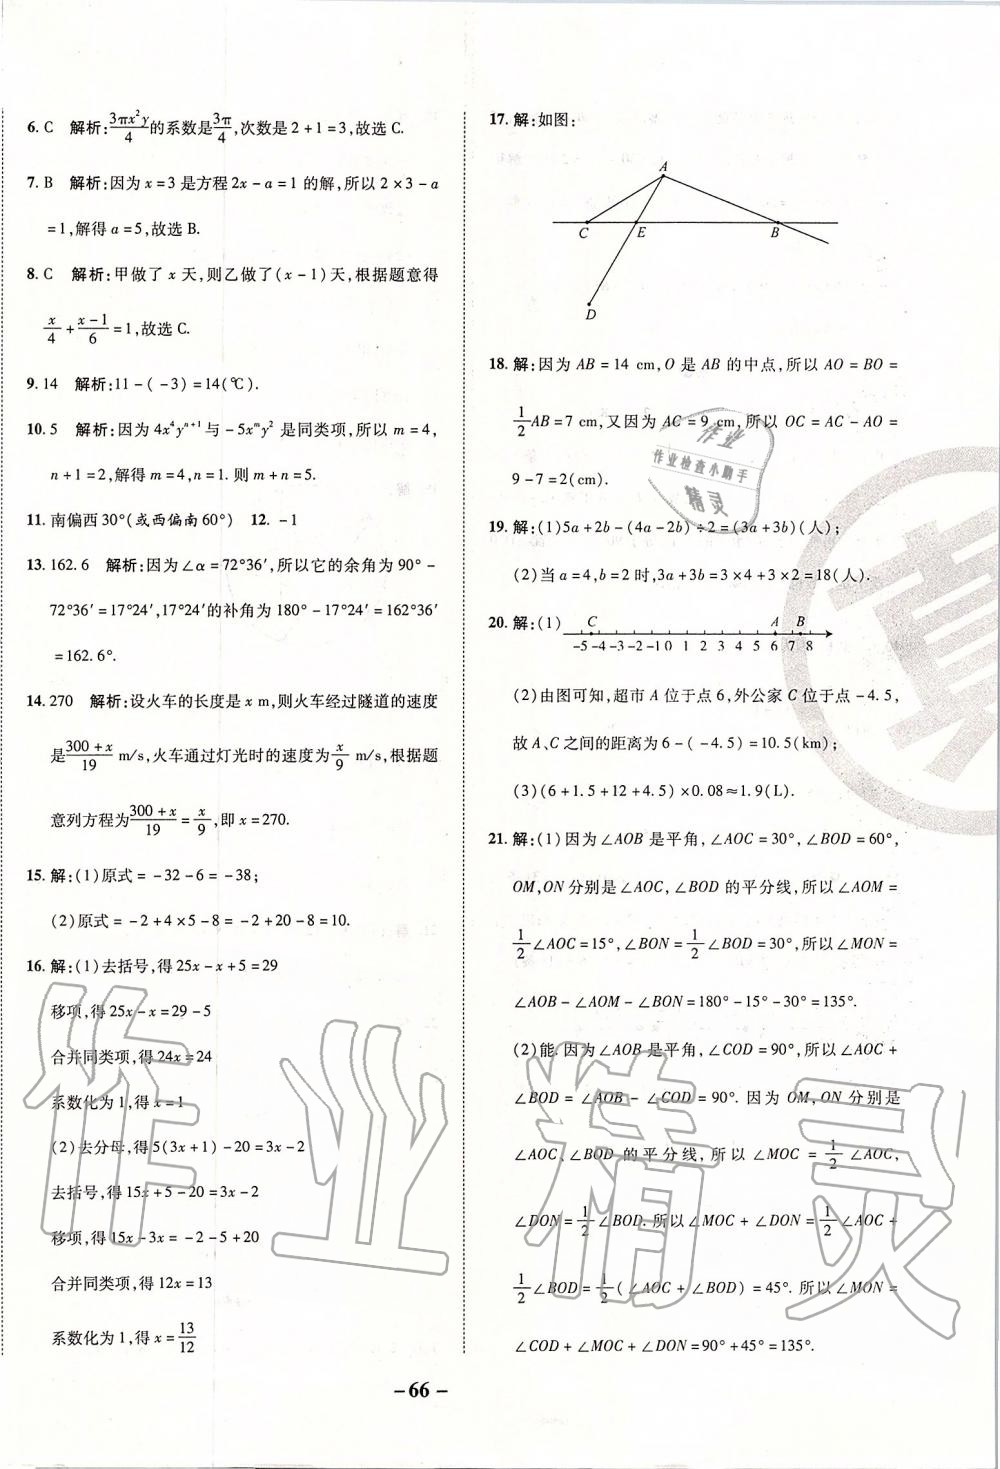 6. C 解析:3πx²y/4的系数是3π/4,次数是2+1=3,故选C.
7. B 解析:因为x=3是方程2x-a=1的解,所以2×3-a
=1,解得a=5,故选B.
8. C 解析:甲做了x天,则乙做了(x-1)天,根据题意得
x/4+(x-1)/6=1,故选C.
9. 14 解析:11-(-3)=14(℃).
10. 5 解析:因为4x⁴yⁿ⁺¹与-5xᵐy²是同类项,所以m=4,
n+1=2,解得m=4,n=1.则m+n=5.
11. 南偏西30°(或西偏南60°) 12. -1
13. 162.6 解析:因为∠α=72°36′,所以它的余角为90°-
72°36′=17°24′,17°24′的补角为180°-17°24′=162°36′
=162.6°.
14. 270 解析:设火车的长度是x m,则火车经过隧道的速度
是(300+x)/19 m/s,火车通过灯光时的速度为x/9 m/s,根据题
意列方程为(300+x)/19=x/9,即x=270.
15. 解:(1)原式=-32-6=-38;
(2)原式=-2+4×5-8=-2+20-8=10.
16. 解:(1)去括号,得25x-x+5=29
移项,得25x-x=29-5
合并同类项,得24x=24
系数化为1,得x=1
(2)去分母,得5(3x+1)-20=3x-2
去括号,得15x+5-20=3x-2
移项,得15x-3x=-2-5+20
合并同类项,得12x=13
系数化为1,得x=13/12
17. 解:如图:
A
C E B
D
18. 解:因为AB=14 cm,O是AB的中点,所以AO=BO=
1/2AB=7 cm,又因为AC=9 cm,所以OC=AC-AO=
9-7=2(cm).
19. 解:(1)5a+2b-(4a-2b)÷2=(3a+3b)(人);
(2)当a=4,b=2时,3a+3b=3×4+3×2=18(人).
20. 解:(1) C A B
-5-4-3-2-10 1 2 3 4 5 6 7 8
(2)由图可知,超市A位于点6,外公家C位于点-4.5,
故A、C之间的距离为6-(-4.5)=10.5(km);
(3)(6+1.5+12+4.5)×0.08≈1.9(L).
21. 解:(1)因为∠AOB是平角,∠AOC=30°,∠BOD=60°,
OM,ON分别是∠AOC,∠BOD的平分线,所以∠AOM=
1/2∠AOC=15°,∠BON=1/2∠BOD=30°,所以∠MON=
∠AOB-∠AOM-∠BON=180°-15°-30°=135°.
(2)能.因为∠AOB是平角,∠COD=90°,所以∠AOC+
∠BOD=∠AOB-∠COD=90°.因为OM,ON分别是
∠AOC、∠BOD的平分线,所以∠MOC=1/2∠AOC,
∠DON=1/2∠BOD.所以∠MOC+∠DON=1/2∠AOC+
1/2∠BOD=1/2(∠AOC+∠BOD)=45°.所以∠MON=
∠COD+∠MOC+∠DON=90°+45°=135°.
-66-
作业
作业检查小助手
精灵
真
作业精灵